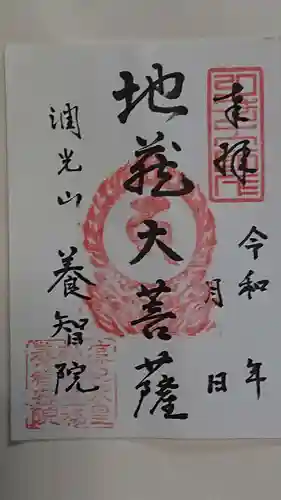 奉拝
令和 年
月 日
地蔵大菩薩
潤光山 養智院